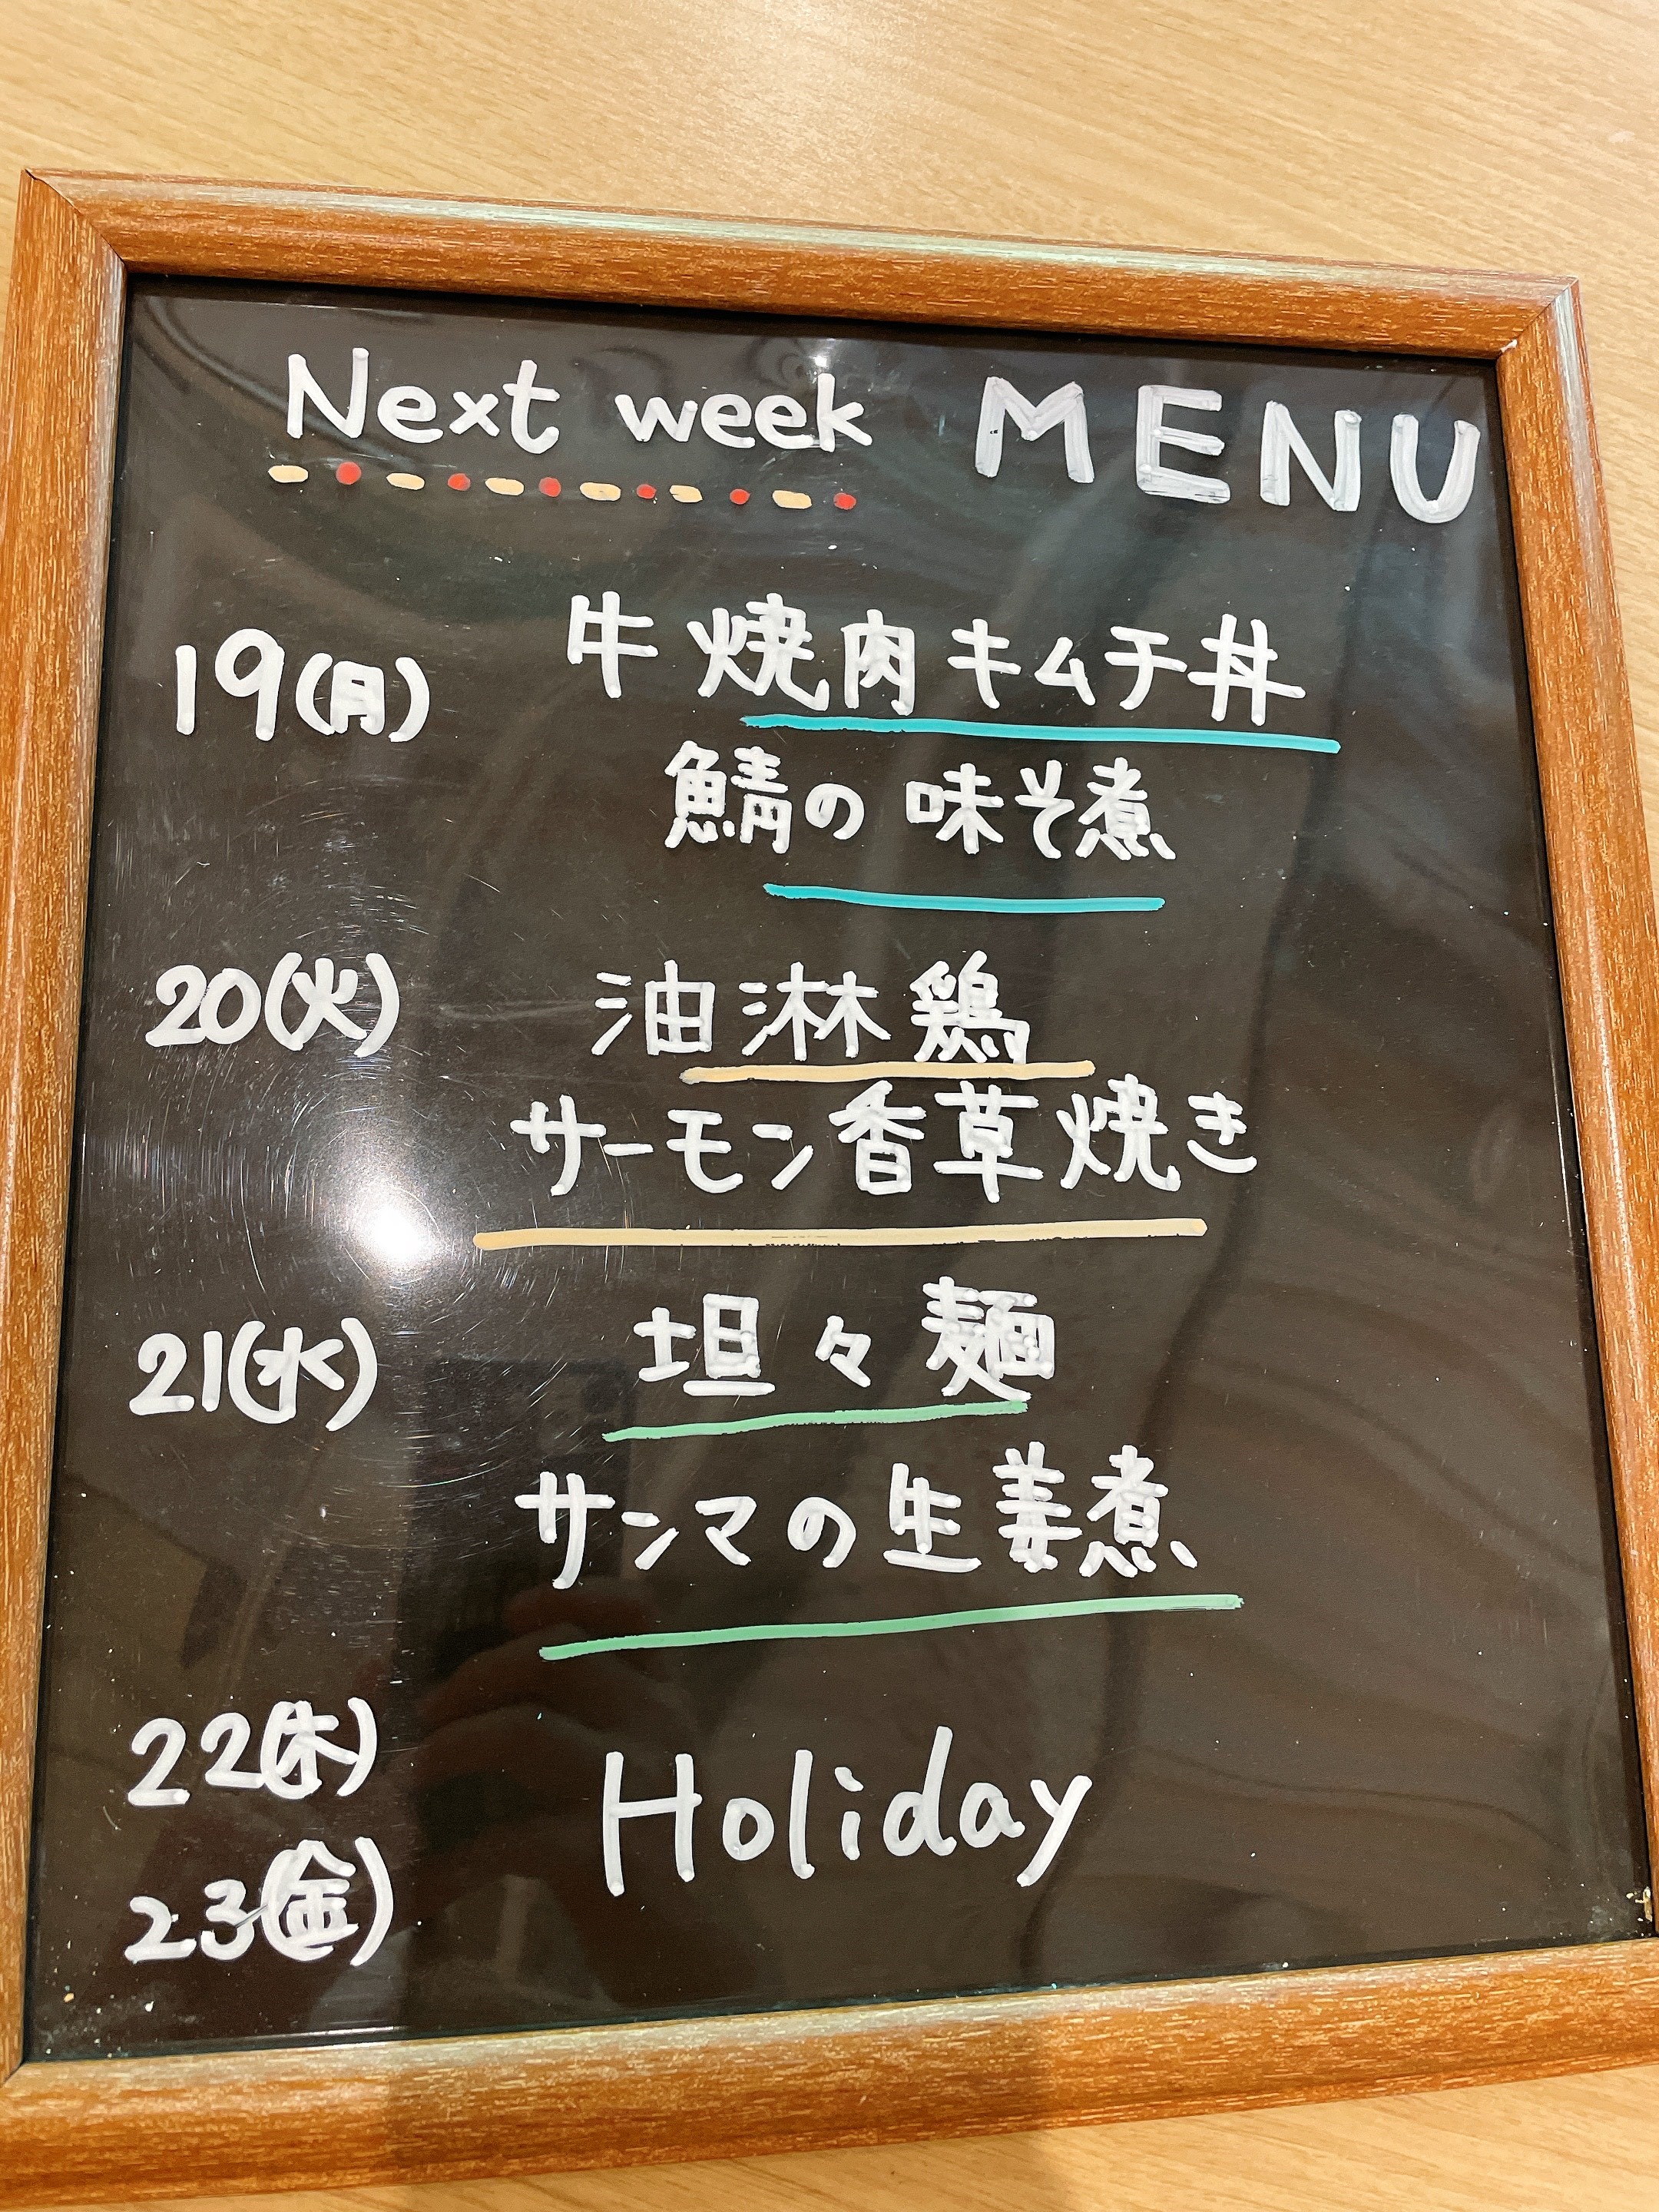 Next week MENU
19(月) 牛焼肉キムチ丼
鯖の味そ煮
20(火) 油淋鶏
サーモン香草焼き
21(水) 坦々麺
サンマの生姜煮
22(木)
Holiday
23(金)